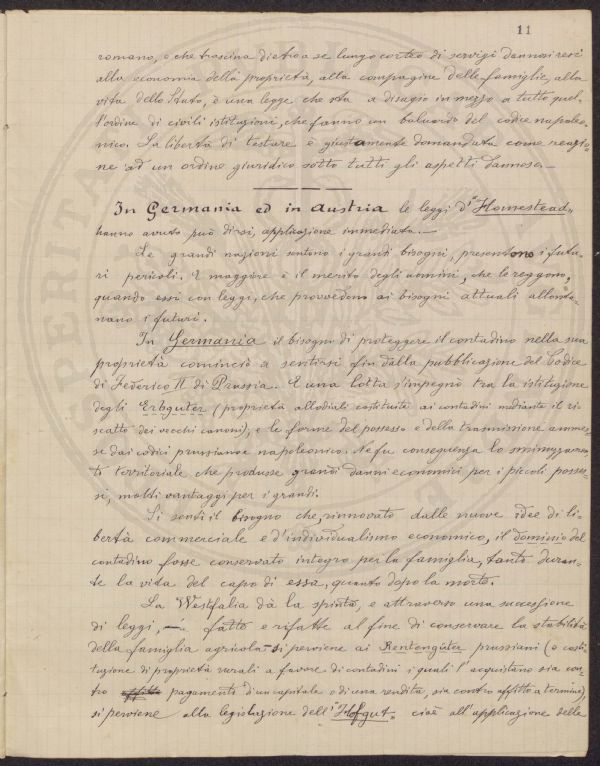 11
romano, e che trascina dietro a se lungo corteo di servigi dannosi resi
alla economia della proprietà, alla compagine delle famiglie, alla
vita dello Stato, è una legge che sta a disagio in mezzo a tutto quel-
l'ordine di civili istituzioni, che fanno un baluardo del codice napoleo-
nico. La libertà di testare è giustamente domandata come reazio-
ne ad un ordine giuridico sotto tutti gli aspetti dannoso.
In Germania ed in Austria le leggi d' "Homestead"
hanno avuto può dirsi, applicazione immediata.
Le grandi nazioni sentono i grandi bisogni, presentono i futu-
ri pericoli. E maggiore è il merito degli uomini, che le reggono,
quando essi con leggi, che provvedono ai bisogni attuali allonta-
nano i futuri.
In Germania il bisogno di proteggere il contadino nella sua
proprietà cominciò a sentirsi fin dalla pubblicazione del Codice
di Federico II di Prussia. E una lotta s'impegnò tra la istituzione
degli Erbguter (proprietà allodiali costituite ai contadini mediante il ri-
scatto dei vecchi canoni), e le forme del possesso e della trasmissione ammes-
se dai codici prussiano e napoleonico. Ne fu conseguenza lo sminuzzamen-
to territoriale che produsse grandi danni economici per i piccoli posses-
si, molti vantaggi per i grandi.
Si sentì il bisogno che, rinnovato dalle nuove idee di li-
bertà commerciale e d'individualismo economico, il dominio del
contadino fosse conservato integro per la famiglia, tanto duran-
te la vita del capo di essa, quanto dopo la morte.
La Westfalia dà la spinta, e attraverso una successione
di leggi, fatte e rifatte al fine di conservare la stabilità
della famiglia agricola si perviene ai Rentengüter prussiani (o costi-
tuzione di proprietà rurali a favore di contadini i quali l'acquistano sia con-
tro pagamento d'un capitale o di una rendita, sia contro affitto a termine),
si perviene alla legislazione dell' "Hofgut" cioè all'applicazione delle